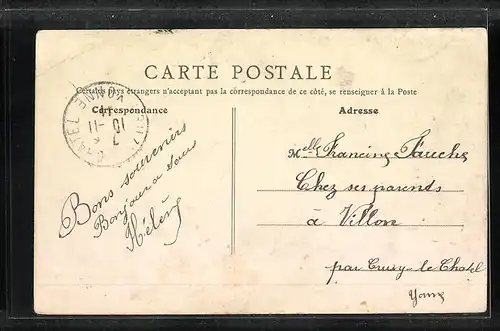 CARTE POSTALE
Certains pays étrangers n'acceptant pas la correspondance de ce côté, se renseigner à la Poste
Correspondance
Adresse
CHATEL
YONNE
7
10 - 11
Bons souvenirs
Bonjour a tous
Hélène
Melle Francine Fauche
Chez ses parents
à Villon
par Cruzy-le-Chatel
Yonne